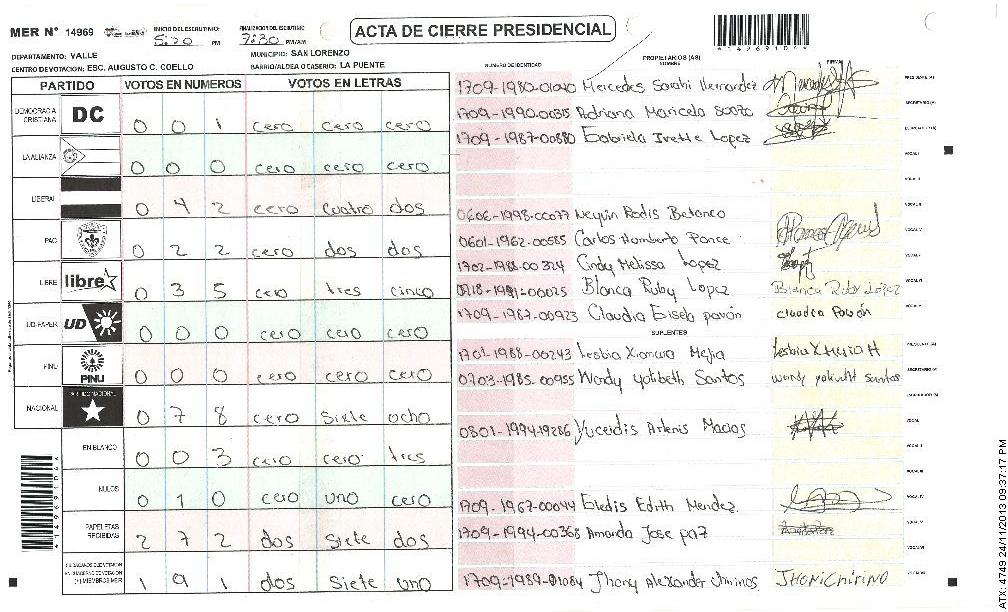 MER N° 14969
INICIO DEL ESCRUTINIO: 5:20 PM
FINALIZACION DEL ESCRUTINIO: 7:30 PM/AM
ACTA DE CIERRE PRESIDENCIAL
DEPARTAMENTO: VALLE
MUNICIPIO: SAN LORENZO
CENTRO DE VOTACION: ESC. AUGUSTO C. COELLO
BARRIO/ALDEA O CASERIO: LA PUENTE
PARTIDO VOTOS EN NUMEROS VOTOS EN LETRAS
DEMOCRACIA CRISTIANA DC 0 0 1 cero cero cero
LA ALIANZA 0 0 0 cero cero cero
LIBERAL 0 4 2 cero cuatro dos
PAC 0 2 2 cero dos dos
LIBRE libre 0 3 5 cero tres cinco
UD-FAPER UD 0 0 0 cero cero cero
PINU PINU 0 0 0 cero cero cero
NACIONAL PARTIDO NACIONAL 0 7 8 cero siete ocho
EN BLANCO 0 0 3 cero cero tres
NULOS 0 1 0 cero uno cero
PAPELETAS RECIBIDAS 2 7 2 dos siete dos
(+) MIEMBROS MER 1 9 1 dos siete uno
NUMERO DE IDENTIDAD
PROPIETARIOS (AS)
NOMBRE
FIRMA
1709-1980-01040 Mercedes Sarahi Hernandez PRESIDENTE (A)
1709-1990-00315 Adriana Maricela SECRETARIO (A)
1709-1987-00880 Gabriela Ivette Lopez ESCRUTADOR (A)
VOCAL I
VOCAL II
0606-1998-00077 VOCAL III
0601-1962-00585 Carlos Humberto Ponce VOCAL IV
1702-1988-00324 Cindy Melissa Lopez VOCAL V
0718-1991-00025 Blanca Ruby Lopez Blanca Ruby López VOCAL VI
1709-1967-00923 Claudia pavón claudia Pavón
SUPLENTES
1701-1988-00243 Lesbia Xiomara Mejia Lesbia X Mejia H PRESIDENTE (A)
0703-1985-00955 Wendy yolibeth Santos wendy yolibeth santos SECRETARIO (A)
ESCRUTADOR (A)
0801-1994-19286 VOCAL I
VOCAL II
VOCAL III
1709-1967-00044 Eledis Edith Mendez VOCAL IV
1709-1994-00368 Amanda Jose paz VOCAL V
VOCAL VI
1709-1989-01084 Jhony Alexander
ATX: 4749 24/11/2013 09:37:17 PM